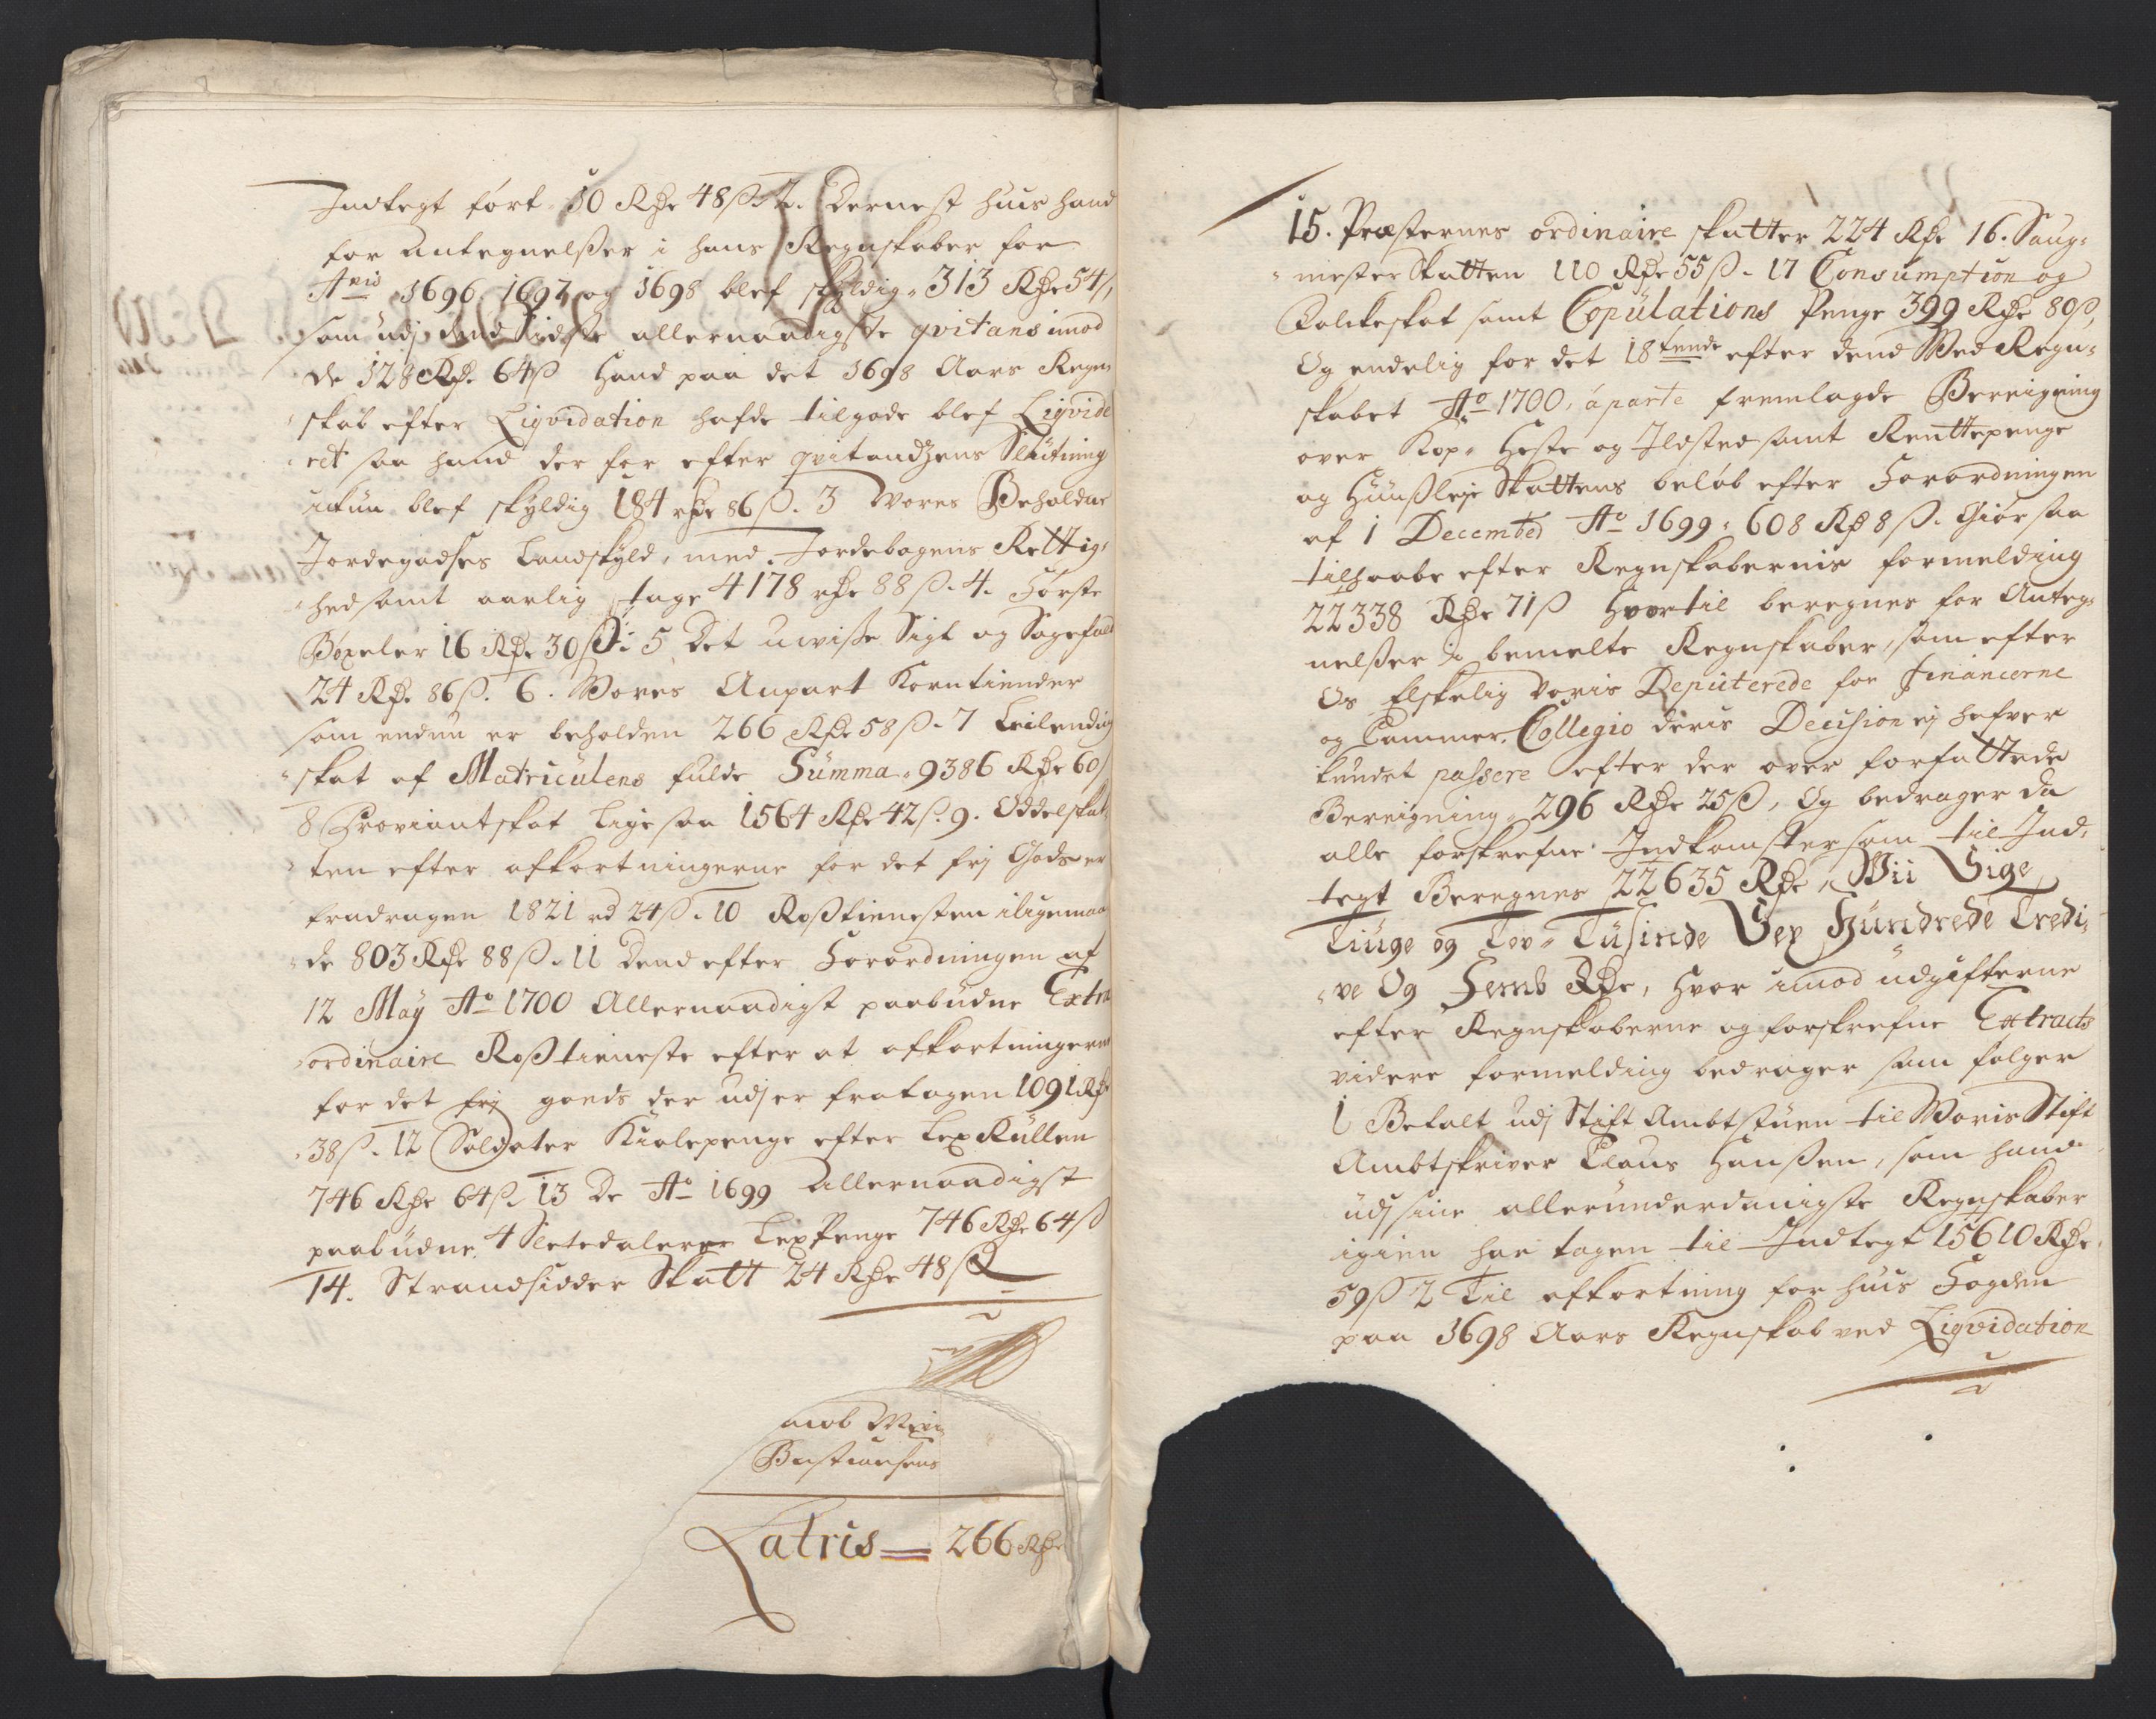 Indtegt ført 10 Rdr 48 ß 2. Dernest huis hand
for Antegnelßer i hans Regnskaber for
Anis 1696. 1697 og 1698 blef skyldig 313 Rdr 54 ß,
som udj dend sidste allernaadigste qvitans imod
de 128 Rdr 64 ß hand paa det 1698 Aars Regen
skab efter Liqvidation hafde tilgode blef Liqvide
ret saa hand der for efter qvitandzens Slutning
ickun blef skyldig 184 rdr 86 ß. 3 Vores Beholdne
Jordegodses Landskyld, med Jordebogens Rettig-
hed samt aarlig tage 4178 rdr 88 ß. 4. Første
Bøxeler 16 Rdr 30 ß: 5 Det uwiße Sigt og Sagefald
24 Rdr. 86 ß. 6. Vores Anpart Korntiender
som endnu er beholden 266 Rdr 58 ß. 7 Leilendings
skat af Matriculens fulde Summa 9386 Rdr 60 ß
8 Proviantskat Lige saa 1564 Rdr 42 ß. 9. Oddelskat-
ten efter afkortningerne for det frj Gods er
fradragen 1821 rd 24 ß. 10 Roßtienesten iligemaa
de 803 Rdr 88 ß. 11 Dend efter Forordningen af
12 Maÿ Ao 1700 Allernaadigst paabudne Extra
ordinaire Roßtieneste efter at afkortningerne
for det frj goeds der udj er fratagen 1091 Rdr
38 ß. 12 Soldater Kiolepenge efter Lex Rullen
746 Rdr 64 ß 13 De Ao 1699 Allernaadigst
paabudne 4 Sletedalerer Lex Penge 746 Rdr 64 ß
14. Strandsidder Skatt 24 Rdr 48 ß
Bastiansens
Latris = 266 Rdr
15. Præsternes ordinaire skatter 224 Rdr 16. Saug-
mester Skatten 110 Rdr 55 ß. 17 Consumption og
Folckeskat samt Copulations Penge 399 Rdr 80 ß,
Og endelig for det 18tende efter dend Ved Regn-
skabet Ao 1700, áparte fremlagde Bereigning
over Kop- Heste og Ildsted samt Renttepenge
og Huußleje Skattens beløb efter Forordningen
af 1 December Ao 1699. 608 Rd 8 ß. Giør saa
tilhaabe efter Regnskabernis formelding
22338 Rdr 71 ß Hvortil beregnes for Anteg-
nelßer i bemelte Regnskaber, som efter
Os Elskelig Voris Deputerede for Financerne
og Cammer Collegio deris Decision ej hafver
kundet passere efter der over forfattede
Bereigning 296 Rdr 25 ß, Og bedrager da
alle forskrefne Indkomster som til Ind-
tegt Beregnes 22635 Rdr, Wii Sige
Tiuge og Tov- Tusinde Sex Hundrede Tredi-
ve Og Femb Rdr, Hvor imod udgifterne
efter Regnskaberne og forskrefne Extracts
videre formelding bedrager som følger
1 Betalt udj Stift Ambtstuen til Voris Stift
Ambtskriver Claus Hanßen, som hand
udj sine allerunderdanigste Regnskaber
igien har tagen til Indtegt 15610 Rdr
59 ß 2 Til afkortning for huis Fogden
paa 1698 Aars Regnskab ved Liqvidation